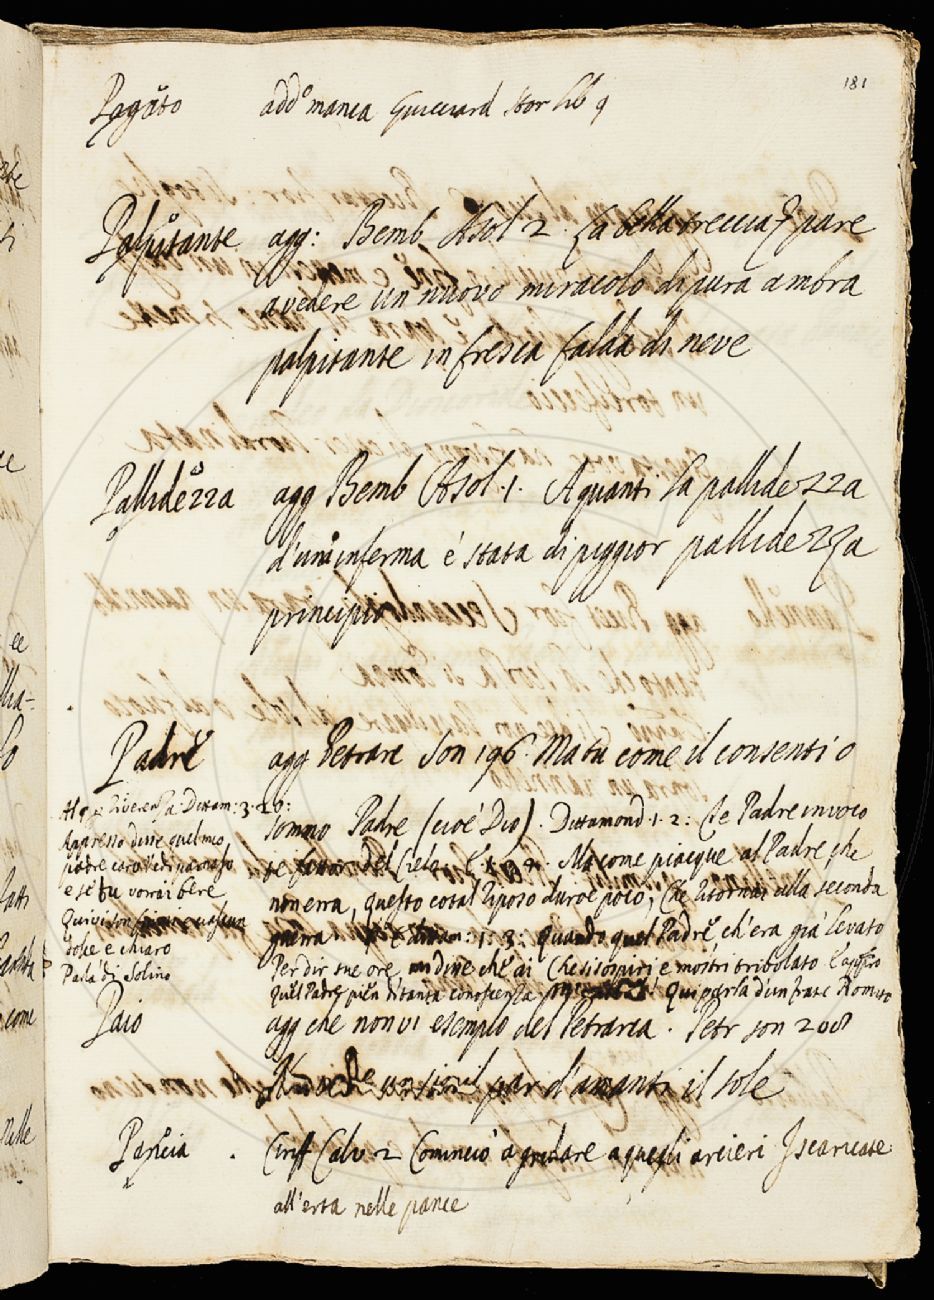 181
Pagato add° manca Guicciard Stor lib 9
Palpitante agg: Bemb Asol 2. La bella treccia pare
avedere un nuovo miracolo di pura ambra
palpitante in fresca falda di neve
Pallidezza agg Bemb Asol. 1. A quanti la pallidezza
d'una inferma é stata di piggior pallidezza
principio
Padre agg Petrarc Son 196. Ma tu come il consenti o
sommo Padre (cioé Dio). Dittamond 1. 2: Che Padre invoco
te fattor del Cielo. Ma come piacque al Padre che
non erra, questo cotal riposo duroé poco, Che ritornai alla seconda
guerra Dittam: 1: 3: quando quel Padre ch'era già levato
Per dir sue ore mi disse che ai Che si sospiri e mostri tribolato
quel Padre pien di tanta conoscenza qui parla d'un frate Romito
Dittam: 3. 20:
Appresso disse quel mio
padre caro
e se tu vorrai bere
Quivi son
dolce e chiaro
Parla di Solino
Paio agg che non vi esemplo del Petrarca. Petr son 208
par d'amanti il sole
Pancia. Ciriff Calv 2 Cominciò a gridare a quegli arcieri Iscaricate
all'erta nelle pance